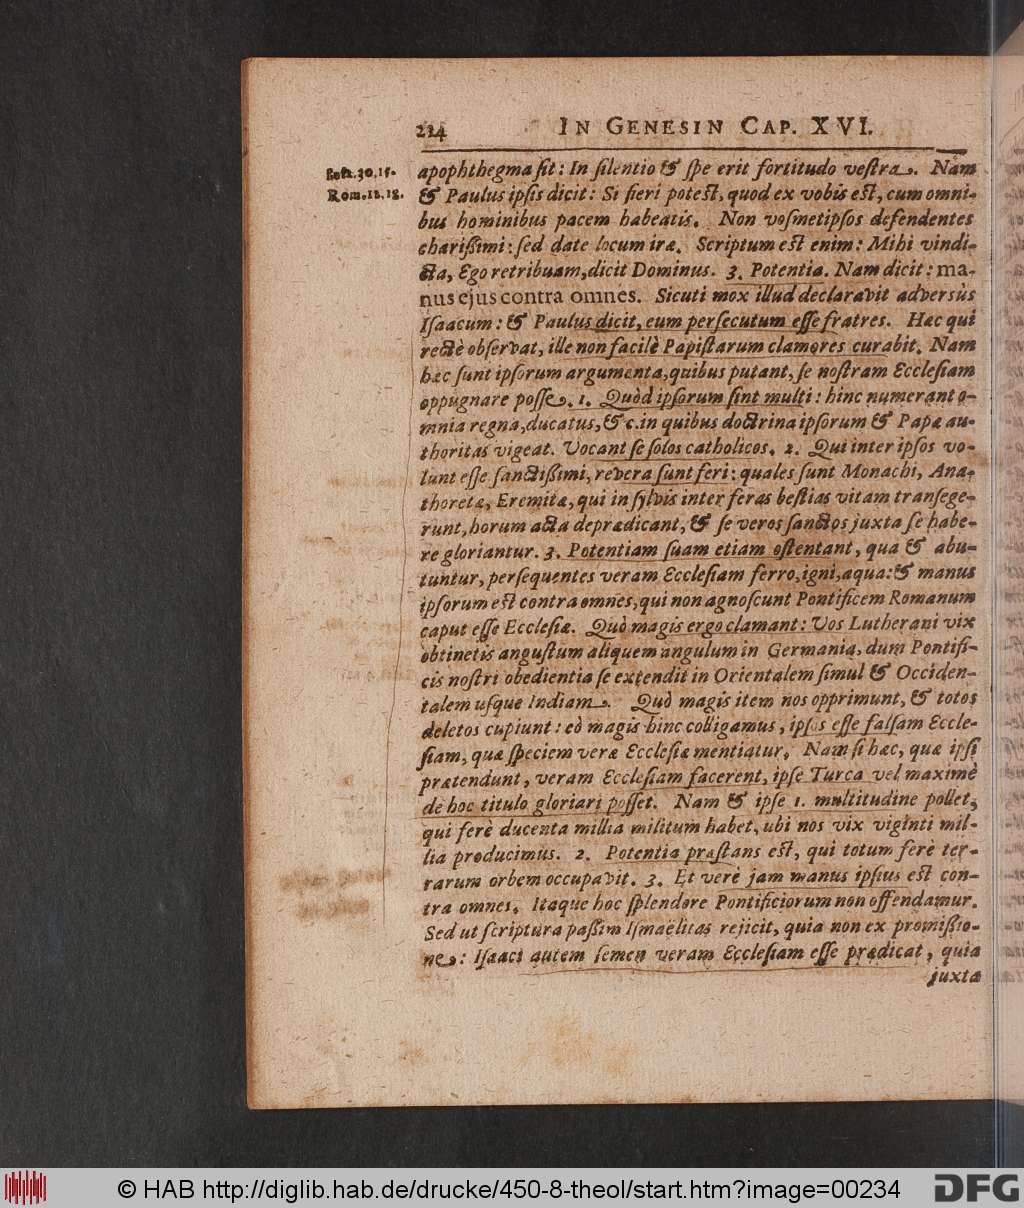 224
IN GENESIN CAP. XVI.
Rom. 12. 18.
apophthegma sit: In silentio & spe erit fortitudo vestra. Nam
& Paulus ipsis dicit: Si fieri potest, quod ex vobis est, cum omni-
bus hominibus pacem habeatis. Non vosmetipsos defendentes
charissimi: sed date locum iræ. Scriptum est enim: Mihi vindi-
cta, Ego retribuam, dicit Dominus. 3. Potentia. Nam dicit: ma-
nus ejus contra omnes. Sicuti mox illud declaravit adversùs
Isaacum: & Paulus dicit, eum persecutum esse fratres. Hæc qui
rectè observat, ille non facilè Papistarum clamores curabit. Nam
hæc sunt ipsorum argumenta, quibus putant, se nostram Ecclesiam
oppugnare posse. 1. Quòd ipsorum sint multi: hinc numerant o-
mnia regna, ducatus, &c. in quibus doctrina ipsorum & Papæ au-
thoritas vigeat. Vocant se solos catholicos. 2. Qui inter ipsos vo-
lunt esse sanctissimi, revera sunt feri: quales sunt Monachi, Ana-
thoretæ, Eremitæ, qui in sylvis inter feras bestias vitam transege-
runt, horum acta deprædicant, & se veros sanctos juxta se habe-
re gloriantur. 3. Potentiam suam etiam ostentant, qua & abu-
tuntur, persequentes veram Ecclesiam ferro, igni, aqua: & manus
ipsorum est contra omnes, qui non agnoscunt Pontificem Romanum
caput esse Ecclesiæ. Quò magis ergo clamant: Vos Lutherani vix
obtinetis angustum aliquem angulum in Germania, dum Pontifi-
cis nostri obedientia se extendit in Orientalem simul & Occiden-
talem usque Indiam. Quò magis item nos opprimunt, & totos
deletos cupiunt: eò magis hinc colligamus, ipsos esse falsam Eccle-
siam, quæ speciem veræ Ecclesiæ mentiatur. Nam si hæc, quæ ipsi
prætendunt, veram Ecclesiam facerent, ipse Turca vel maximè
de hoc titulo gloriari posset. Nam & ipse 1. multitudine pollet,
qui ferè ducenta millia militum habet, ubi nos vix viginti mil-
lia producimus. 2. Potentia præstans est, qui totum ferè ter-
rarum orbem occupavit. 3. Et verè jam manus ipsius est con-
tra omnes. Itaque hoc splendore Pontificiorum non offendamur.
Sed ut scriptura passim Ismaëlitas rejicit, quia non ex promissio-
ne: Isaaci autem semen veram Ecclesiam esse prædicat, quia
juxta
© HAB http://diglib.hab.de/drucke/450-8-theol/start.htm?image=00234
DFG